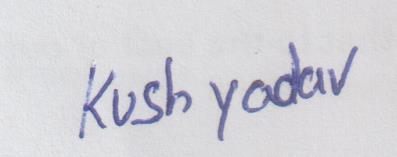 Kush yadav